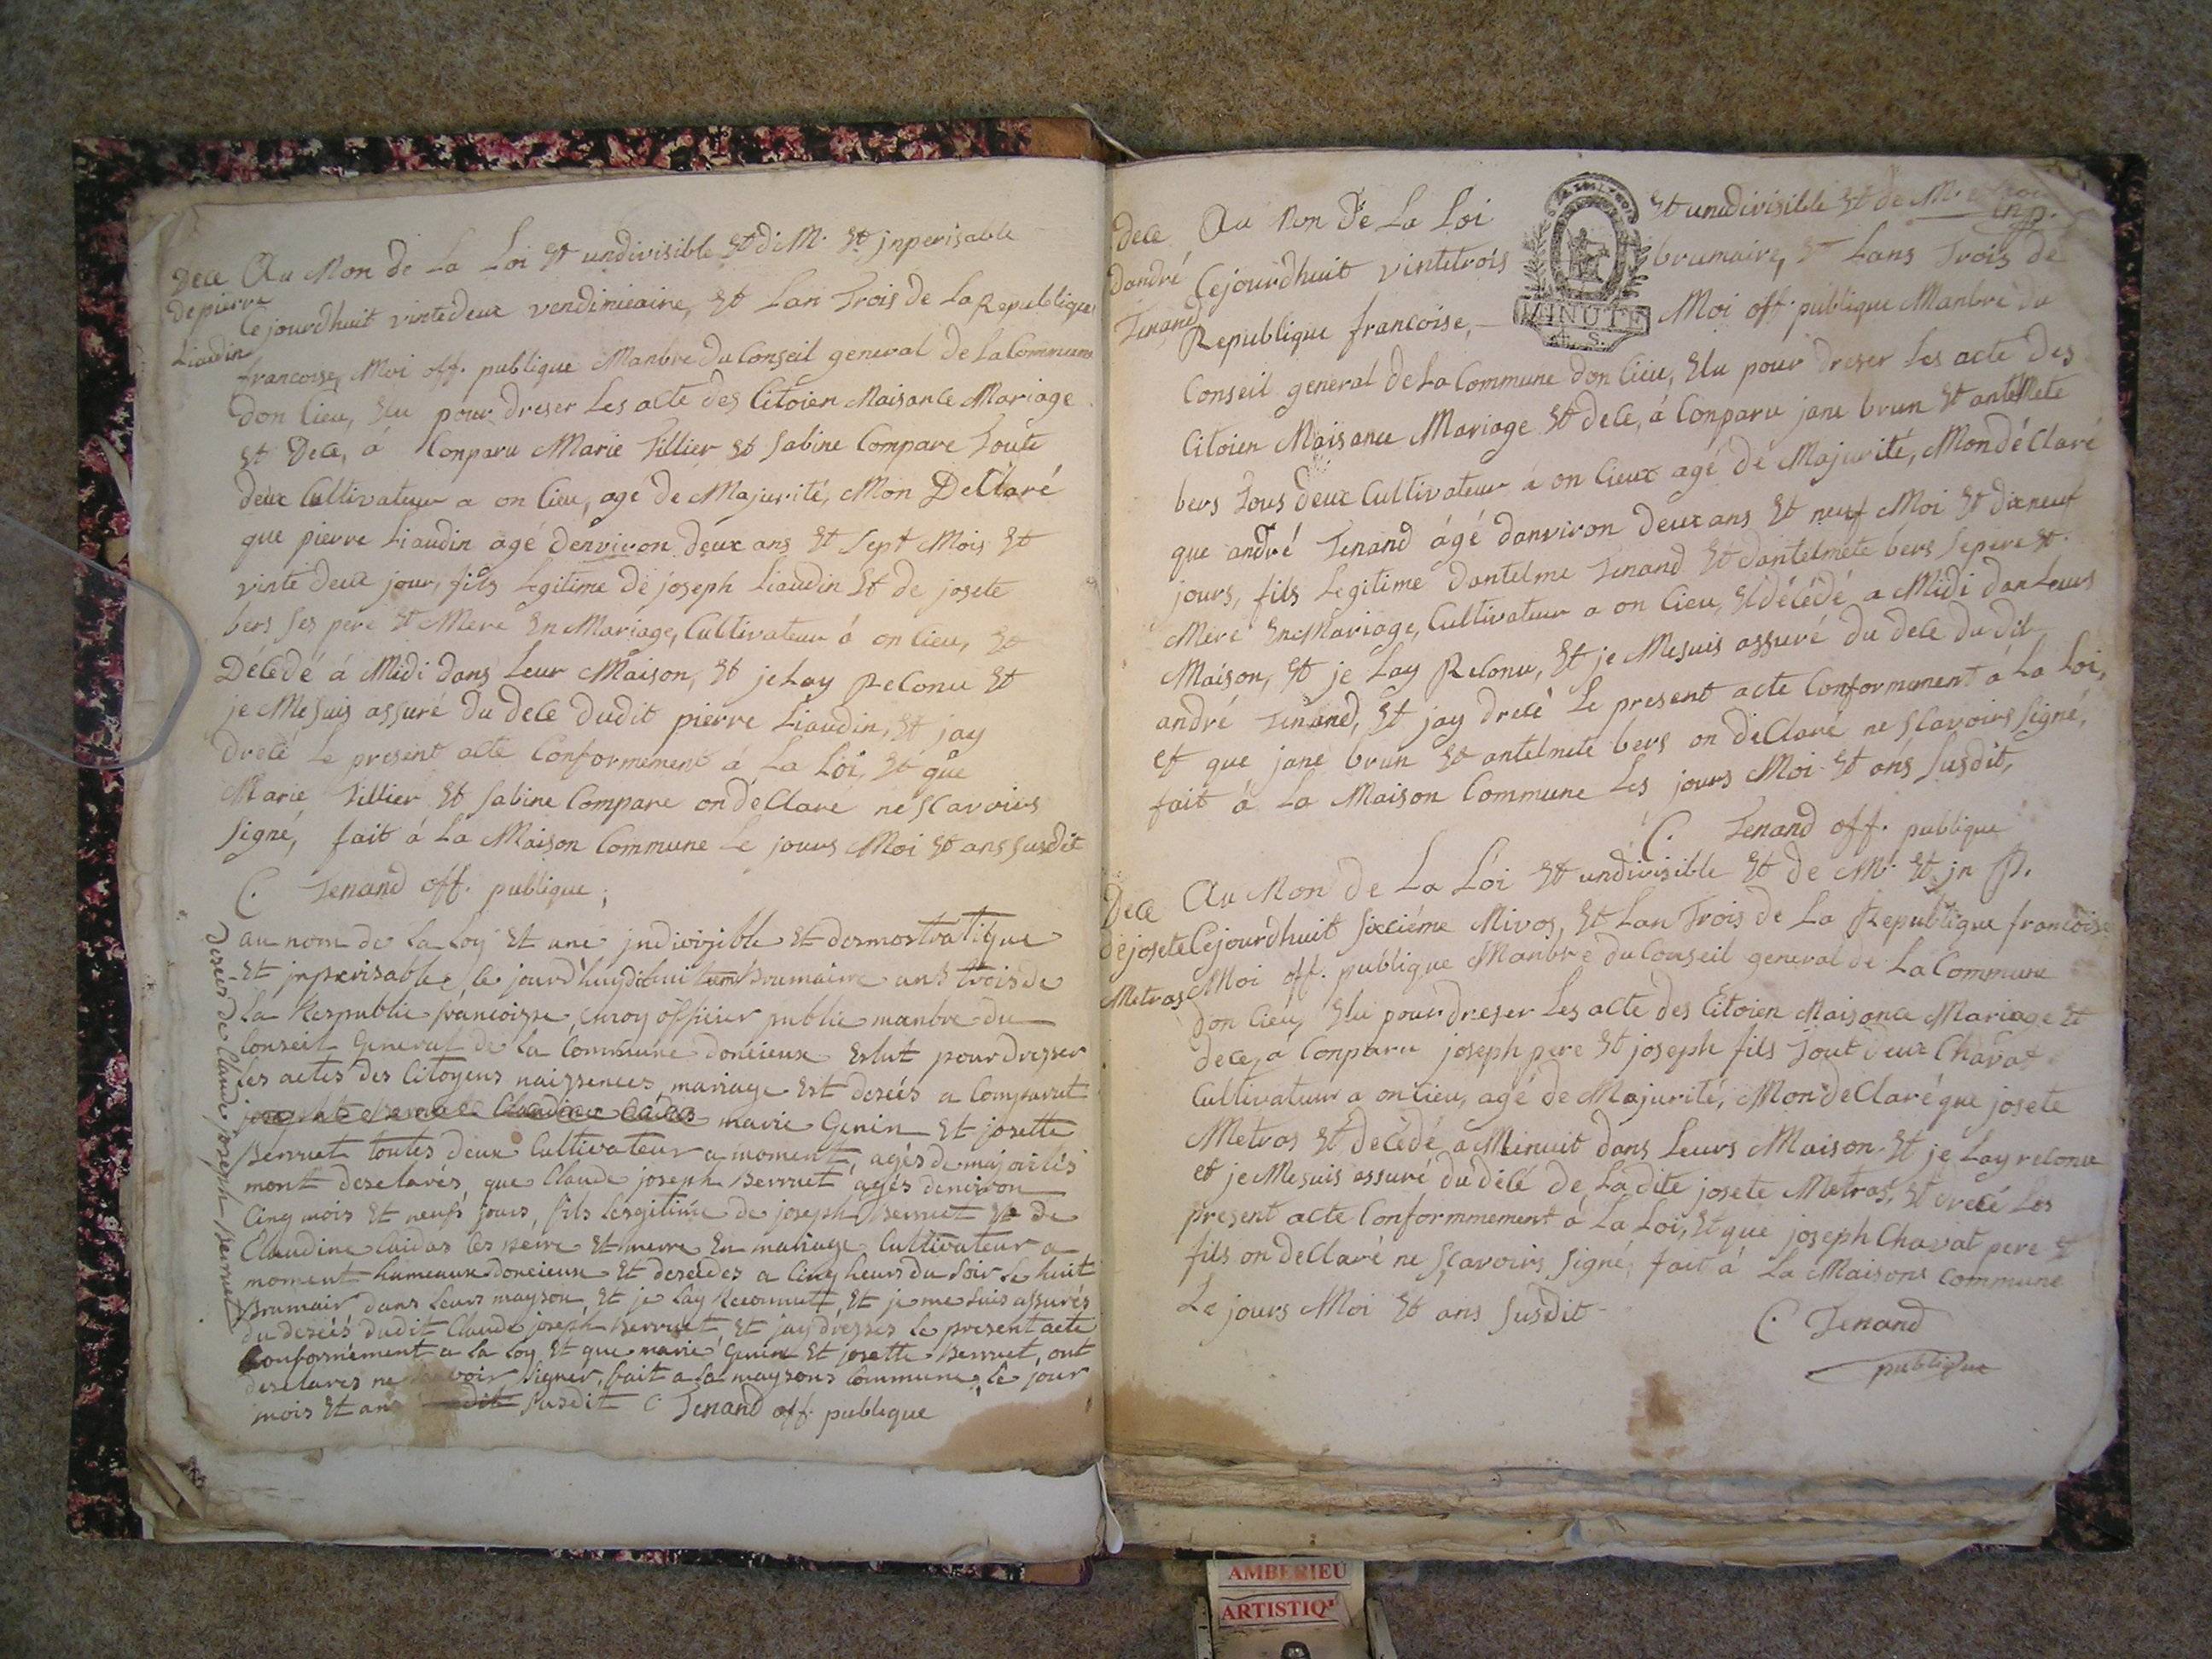 Dece
de pierre
Liaudin
Au Non de La Loi Et undivisible Et di M. Et jnperisable
Cejourdhuit vintedeux vendimieaire, Et Lan Trois de La Republique
francoise, Moi off. publique Manbre du Conseil general de La Commune
don lieu, Elu pour dreser Les acte des Citoien Naisance Mariage
Et Dece, á Conparu Marie Tillier Et Sabine Compare Toute
deux Cultivateur a on lieu, agé de Majurité, Mon DeClaré
que pierre Liaudin agé denviron deux ans Et Sept Mois Et
vinte deux jour, fils Legitime de joseph Liaudin Et de josete
bers Ses pere Et Mere En Mariage, Cultivateur á on lieu, Et
Décédé á Midi dans Leur Maison, Et je Lay ReConu Et
je Me Suis assuré du dece dudit pierre Liaudin, Et jay
drecé Le present acte Conformement á La Loi, Et que
Marie Tillier Et Sabine Compare on deClaré ne Scavoirs
Signé, fait á La Maison Commune Le jours Moi Et ans Susdit
C. Tenand off. publique;
deseés de Claude joseph Berruet
au nom de la Loy Et une jndivizible Et desmostratique
Et jnperisable, le jourd'huy dihuit Brumaire ans trois de
La Respublic francoisse, Emoy officier public manbre du
Conseil General de la Commune doncieux Eslut pour dresser
les actes des Citoyens naissences mariage Est deseés a Comparut
marie Genin Et josette
Berruet toutes deux Cultivateur a moment, agés de majorités
mont deselarés que Claude joseph Berruet agés denviron
Cinq mois Et neufs jours, fils Lesgitime de joseph Berruet Et de
Claudine Caidas les peire Et merre En mariage Cultivateur a
moment hameaux doncieux Et deseédes a Cinq heurs du Soir le huit
Brumair dans Leurs mayson Et je Lay Reconnut, Et je me Suis assurés
du deseés dudit Claude joseph Berruet Et jay dresses le present acte
Conformément a la loy Et que marie Genin Et josette Berruet, ont
deselares ne Signer, fait a la maysons Commune, le jour
mois Et an Susdit C. Tenand off. publique
Dece
dandré
Tenand
Au Non De La Loi Et undivisible Et de M.
inp.
Cejourdhuit vintetrois brumaire, Et Lans Trois de
Republique francoise, Moi off. publique Manbre du
MINUTE
Conseil general de La Commune don lieu, Elu pour dreser Les acte Des
Citoien Naisance Mariage Et dece, á Conparu jane brun Et antelmete
bers Tous deux Cultivateur á on lieux agé de Majurité, Mon déClaré
que andré Tenand ágé danviron deux ans Et neuf Moi Et dixneuf
jours, fils Legitime dantelme Tenand Et dantelmete bers Se pere Et
Mere En Mariage, Cultivateur a on lieu, Et décédé a Midi dan Leurs
Maison, Et je Lay ReConu, Et je Mesuis assuré du dece du dit
andré Tenand, Et jay drecé Le present acte Conformement á La Loi,
et que jane brun Et antelmete bers on déClaré ne Scavoirs Signé,
fait á La Maison Commune Les jours Moi Et ans Susdit,
C. Tenand off. publique
Dece
de josete
Metras
Au Non de La Loi Et undivisible Et de M. Et jn P.
Cejourdhuit Sixciéme Nivos, Et Lan Trois de La Republique francoise
Moi off. publique Manbre du Conseil general de La Commune
don lieu, Elu pour dreser Les acte des Citoien Naisance Mariage Et
dece, a Conparu joseph pere Et joseph fils Tout deux Chavat
Cultivateur a on lieu, agé de Majurité, Mon deClaré que josete
Metras Et decédé a Minuit dans Leurs Maison Et je Lay reConu
et je Mesuis assuré du décé de La dite josete Metras, Et drecé Les
present acte Conformmement á La Loi, Et que joseph Chavat pere Et
fils on deClaré ne Scavoirs Signé, fait á La Maisons Commune
Le jours Moi Et ans Susdit
C. Tenand
publique
AMBERIEU
ARTISTIQ